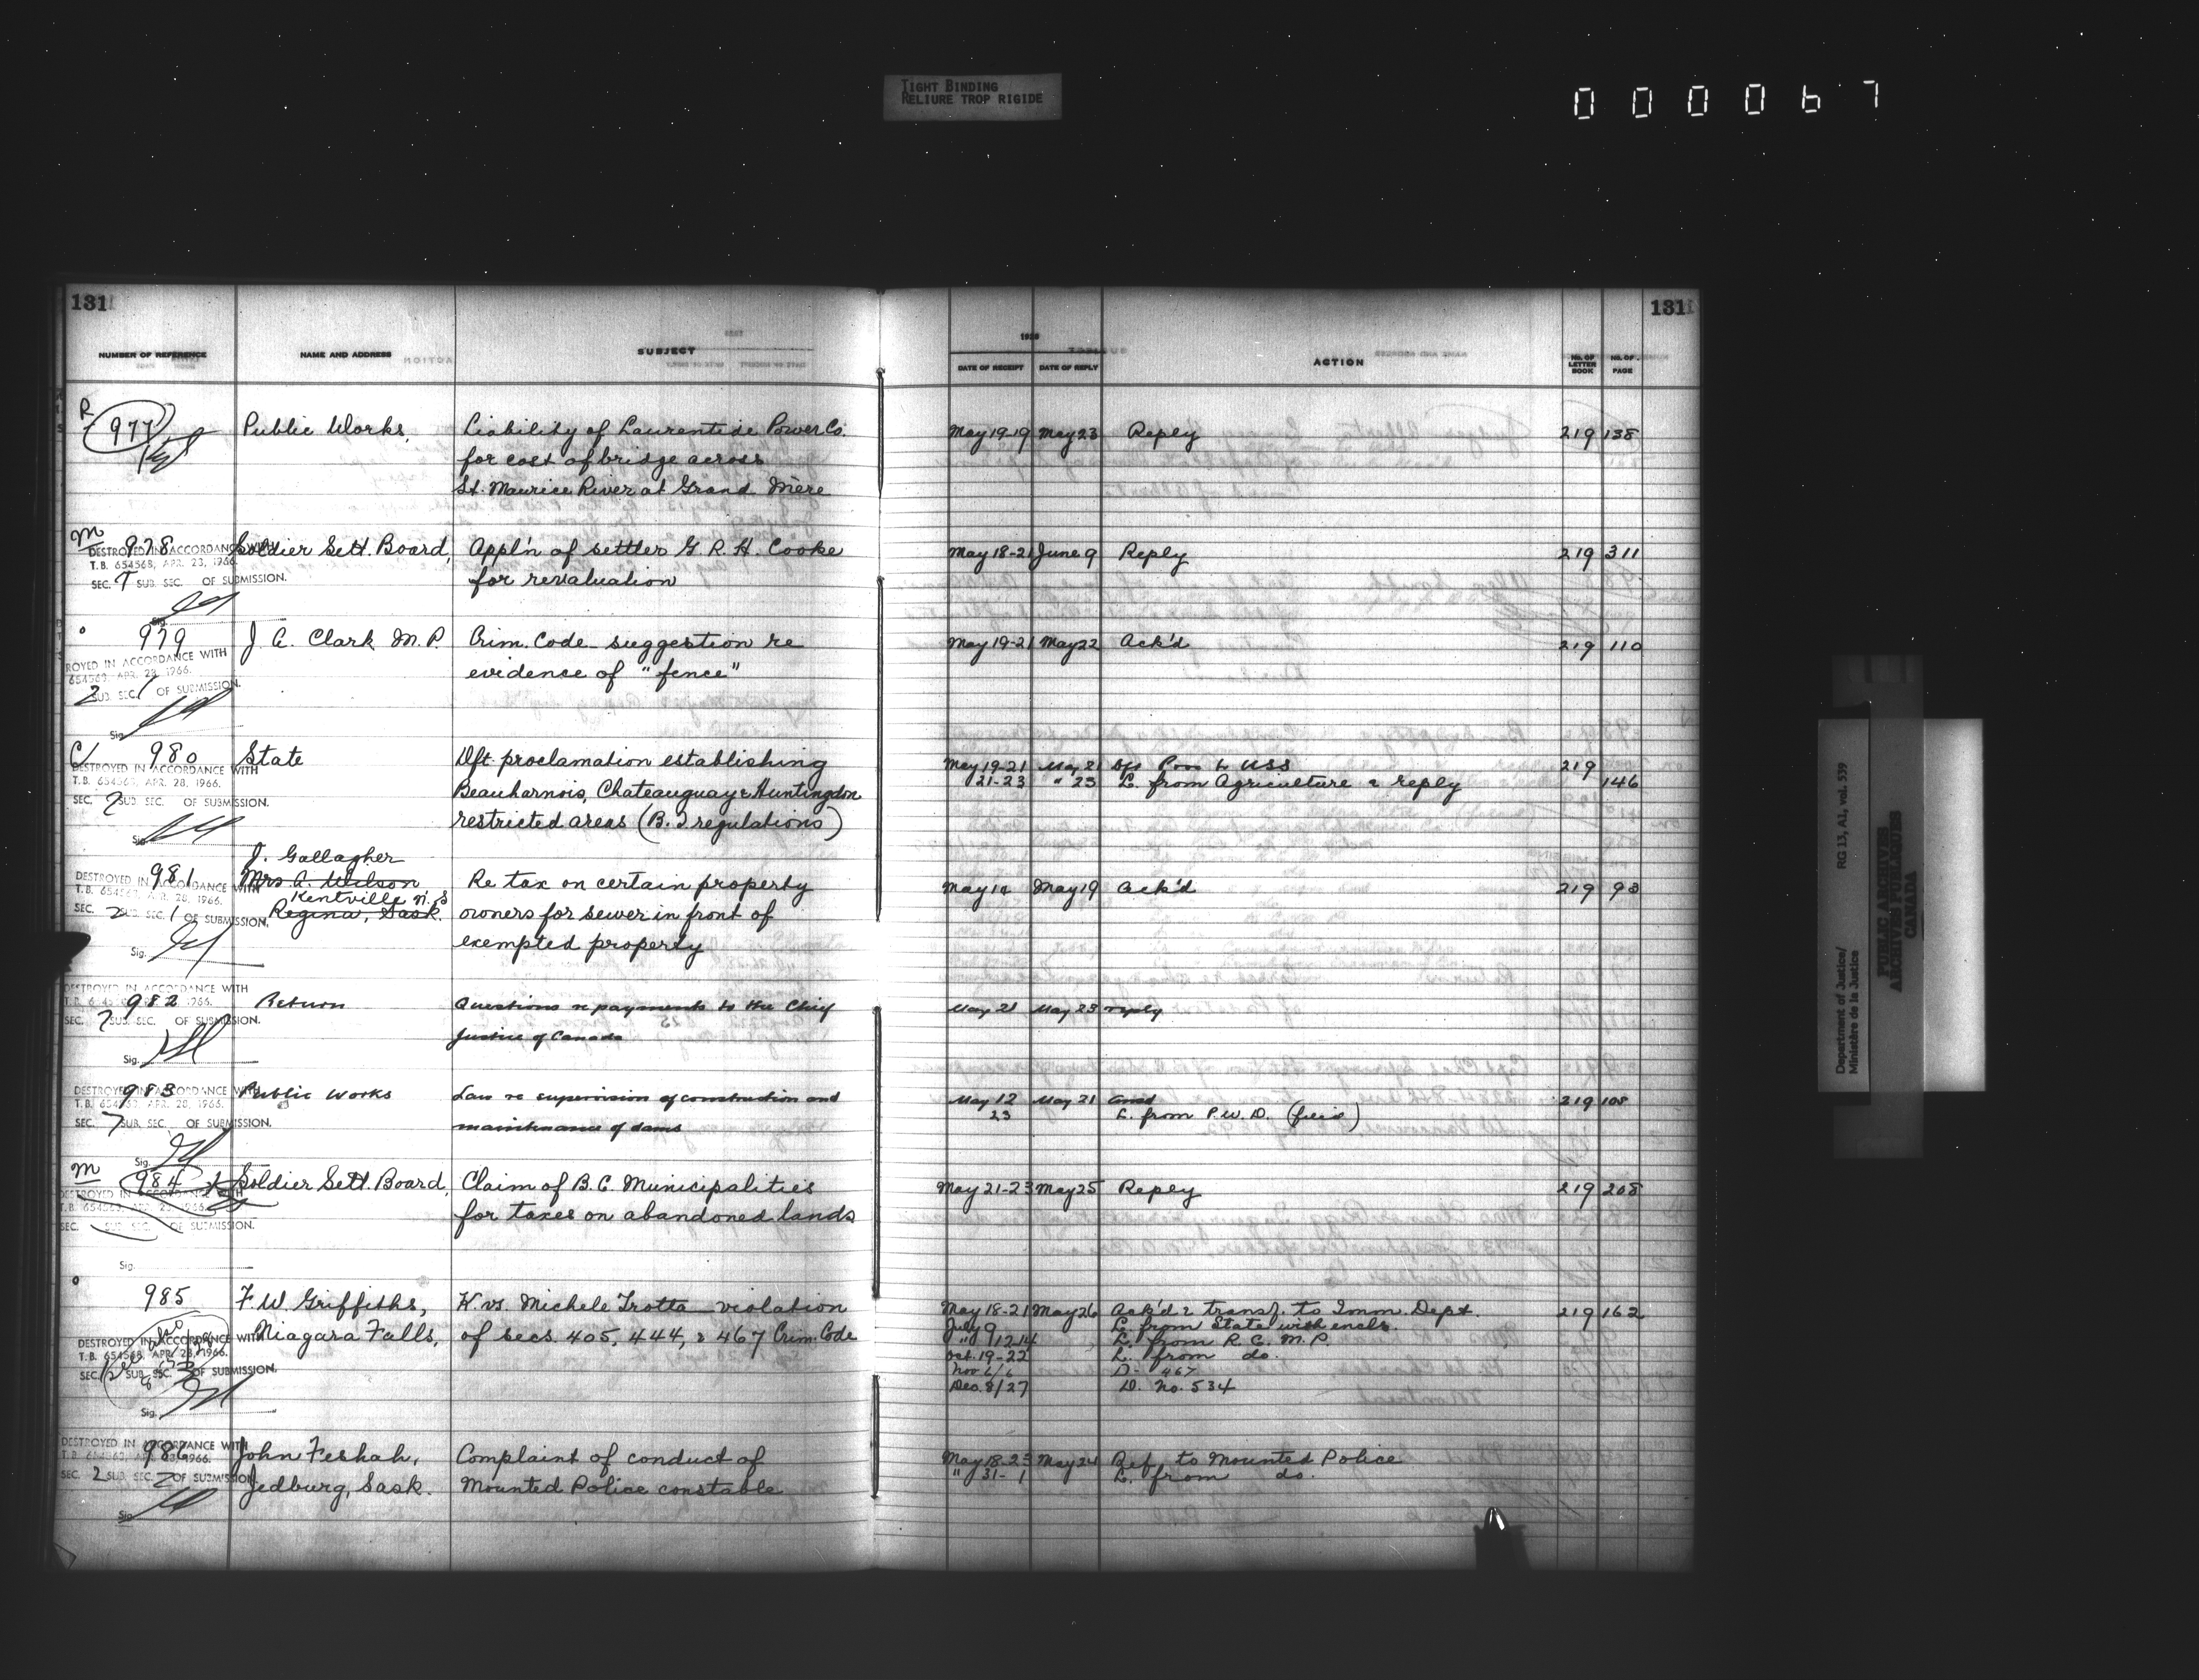 TIGHT BINDING
RELIURE TROP RIGIDE
000067
131 131
NUMBER OF REFERENCE NAME AND ADDRESS SUBJECT DATE OF RECEIPT DATE OF REPLY ACTION No. OF LETTER BOOK No. OF PAGE
R
977 Public Works, Liability of Laurentide Power Co. May 19-19 May 23 Reply 219 138
for cost of bridge across
St. Maurice River at Grand Mère
M
978 Soldier Sett. Board, Appl'n of settler G. R. H. Cooke May 18-21 June 9 Reply 219 311
DESTROYED IN ACCORDANCE WITH
T.B. 654568, APR. 23, 1966.
SEC. 7 SUB. SEC. OF SUBMISSION. for revaluation
Sig.
979 J. A. Clark M.P. Crim. Code - suggestion re May 19-21 May 22 Ack'd 219 110
ROYED IN ACCORDANCE WITH
654569, APR. 28, 1966. evidence of "fence"
2 SUB. SEC. 1 OF SUBMISSION.
Sig.
C/ 980 State Dft. proclamation establishing May 19-21 May 21 219
DESTROYED IN ACCORDANCE WITH
T.B. 654569, APR. 28, 1966. Beauharnois, Chateauguay & Huntingdon 21-23 " 23 L. from Agriculture & reply 146
SEC. 2 SUB. SEC. OF SUBMISSION. restricted areas (B. T regulations)
Sig.
J. Gallagher
981 Mrs. A. Wilson Re tax on certain property May 19 Ack'd 219 93
DESTROYED IN ACCORDANCE WITH
T.B. 654569, APR. 28, 1966. Kentville N.S
SEC. 2 SUB. SEC. 1 OF SUBMISSION. Regina, Sask. owners for sewer in front of
exempted property
Sig.
DESTROYED IN ACCORDANCE WITH
982 Return Questions re payments to the Chief May 21 May 23 reply
SEC. 7 SUB. SEC. OF SUBMISSION. Justice of Canada
Sig.
983 Public Works Law re supervision of construction and May 12 May 21 219 108
DESTROYED IN ACCORDANCE WITH
T.B. 654569, APR. 28, 1966. 23 L. from P.W.D. (file)
SEC. 7 SUB. SEC. OF SUBMISSION. maintenance of dams
Sig.
M
984 Soldier Sett. Board, Claim of B.C. Municipalities May 21-23 May 25 Reply 219 208
DESTROYED IN ACCORDANCE WITH
SEC. SUB. SEC. OF SUBMISSION. for taxes on abandoned lands
Sig.
985 F. W. Griffiths, K. vs. Michele Trotta - violation May 18-21 May 26 Ack'd & transf. to Imm. Dept. 219 162
July 9 L. from State with encls.
Niagara Falls, of secs. 405, 444, & 467 Crim. Code " 12-14 L. from R.C.M.P.
DESTROYED IN ACCORDANCE WITH
T.B. 654568, APR. 28, 1966. Oct. 19-22 L. from do.
SEC. SUB. SEC. OF SUBMISSION. Nov 6/6 D- 467
Dec. 8/27 D. No. 534
Sig.
986 John Feshah, Complaint of conduct of May 18-23 May 24 Ref. to Mounted Police
DESTROYED IN ACCORDANCE WITH
" 31- 1 L. from do.
SEC. 2 SUB. SEC. 7 OF SUBMISSION. Jedburg, Sask. Mounted Police constable
Sig.
Department of Justice/
Ministère de la Justice
RG 13, A1, vol. 539
PUBLIC ARCHIVES
ARCHIVES PUBLIQUES
CANADA